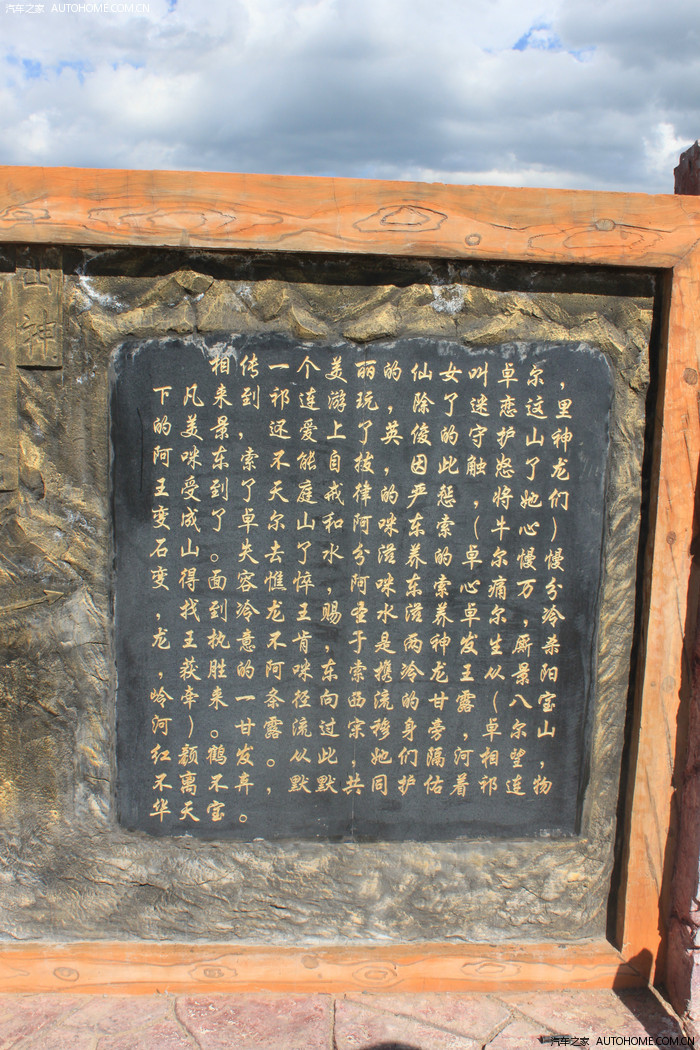 山神
相传一个美丽的仙女叫卓尔，
下凡来到祁连游玩，除了迷恋这里
的美景，还爱上了英俊的守护山神
阿咪东索不能自拔，因此触怒了龙
王受到了天庭戒律的严惩，将她们
变成了卓尔山和阿咪东索（牛心）
石山。失去了水分滋养的卓尔慢慢
变得面容憔悴，阿咪东索心痛万分
，找到冷龙王赐圣水滋养卓尔，冷
龙王执意不肯，于是两神发生厮杀
，获胜的阿咪东索携冷龙王以景阳
岭幸来一条径向西流的甘露（八宝
河）。甘露流过宗穆身旁，卓尔山
红颜鹤发。以此，她们隔河相望，
不离不弃，默默共同护佑着祁连物
华天宝。
汽车之家 AUTOHOME.COM.CN
汽车之家 AUTOHOME.COM.CN